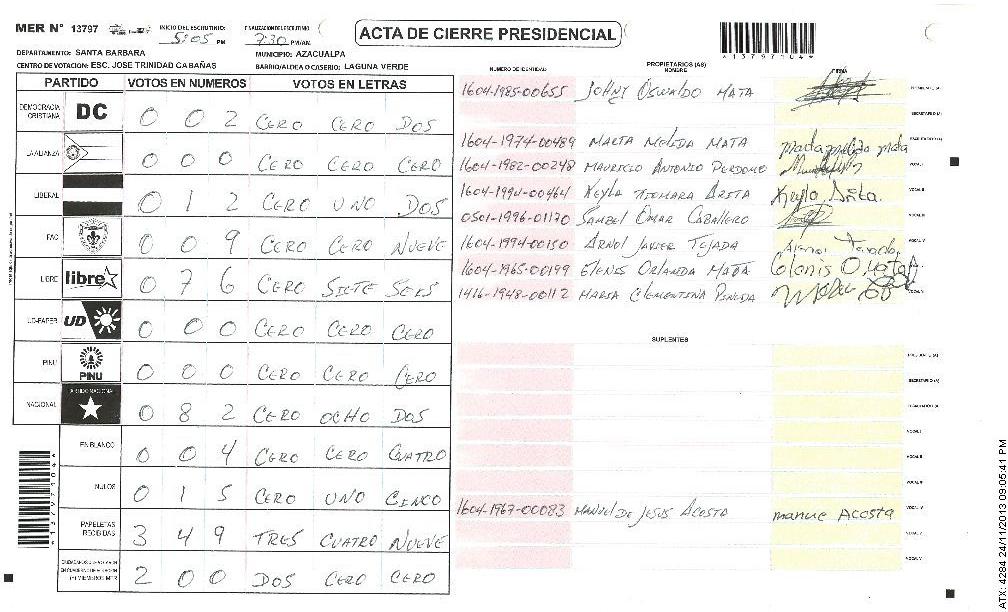 MER N° 13797
INICIO DEL ESCRUTINIO: 5:05 PM
FINALIZACION DEL ESCRUTINIO: 7:30 PM/AM.
ACTA DE CIERRE PRESIDENCIAL
*13797104*
DEPARTAMENTO: SANTA BARBARA
MUNICIPIO: AZACUALPA
CENTRO DE VOTACION: ESC. JOSE TRINIDAD CABAÑAS
BARRIO/ALDEA O CASERIO: LAGUNA VERDE
PARTIDO VOTOS EN NUMEROS VOTOS EN LETRAS
DEMOCRACIA CRISTIANA DC 0 0 2 CERO CERO DOS
LA ALIANZA 0 0 0 CERO CERO CERO
LIBERAL 0 1 2 CERO UNO DOS
PAC 0 0 9 CERO CERO NUEVE
LIBRE libre 0 7 6 CERO SIETE SEIS
UD-FAPER UD 0 0 0 CERO CERO CERO
PINU PINU 0 0 0 CERO CERO CERO
NACIONAL PARTIDO NACIONAL 0 8 2 CERO OCHO DOS
EN BLANCO 0 0 4 CERO CERO CUATRO
NULOS 0 1 5 CERO UNO CINCO
PAPELETAS RECIBIDAS 3 4 9 TRES CUATRO NUEVE
2 0 0 DOS CERO CERO
*13797104*
NUMERO DE IDENTIDAD PROPIETARIOS (AS) NOMBRE FIRMA
1604-1985-00655 JOHNY OSWALDO MATA
1604-1974-00489 MARTA MELIDA MATA
1604-1982-00248 MAURICIO ANTONIO PERDOMO
1604-1994-00464 KEYLA XIOMARA ARITA Keyla Arita.
0501-1996-01170 SAMUEL OMAR CABALLERO
1604-1994-00150 ARNOL JAVIER TEJADA
1604-1965-00199 ELENIS ORLANDA MATA
1416-1948-00112 MARIA CLEMENTINA PINEDA
SUPLENTES
1604-1967-00083 MANUEL DE JESUS ACOSTA manue Acosta
ATX: 4284 24/11/2013 09:05:41 PM